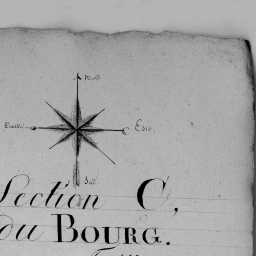 Nord
Est.
Sud
Section C,
du BOURG.